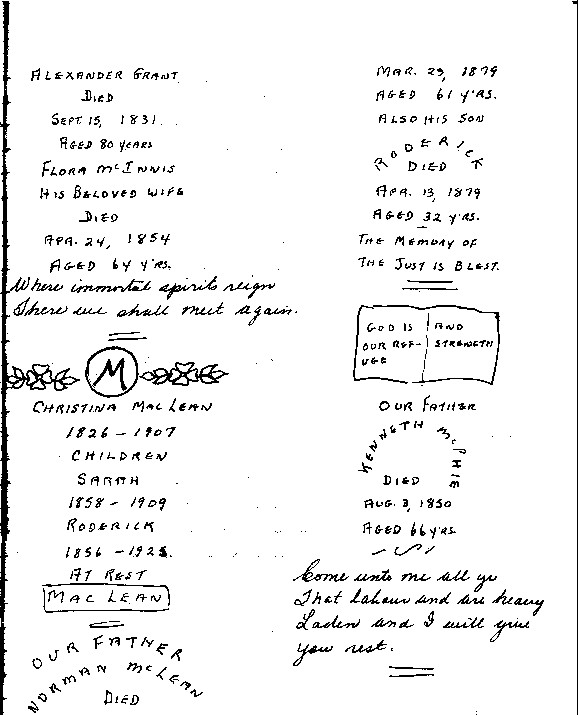 ALEXANDER GRANT
DIED
SEPT. 15, 1831.
AGED 80 YEARS
FLORA McINNIS
HIS BELOVED WIFE
DIED
APR. 24, 1854
AGED 64 Y'RS.
Where immortal spirits reign
There we shall meet again.
M
CHRISTINA MACLEAN
1826 - 1907
CHILDREN
SARAH
1858 - 1909
RODERICK
1856 - 1925.
AT REST
MACLEAN
OUR FATHER
NORMAN McLEAN
DIED
MAR. 23, 1879
AGED 61 Y'RS.
ALSO HIS SON
RODERICK
DIED
APR. 13, 1879
AGED 32 Y'RS.
THE MEMORY OF
THE JUST IS BLEST.
GOD IS
OUR REF-
UGE
AND
STRENGTH
OUR FATHER
KENNETH McPHIE
DIED
AUG. 3, 1850
AGED 66 Y'RS.
Come unto me all ye
That labour and are heavy
Laden and I will give
you rest.